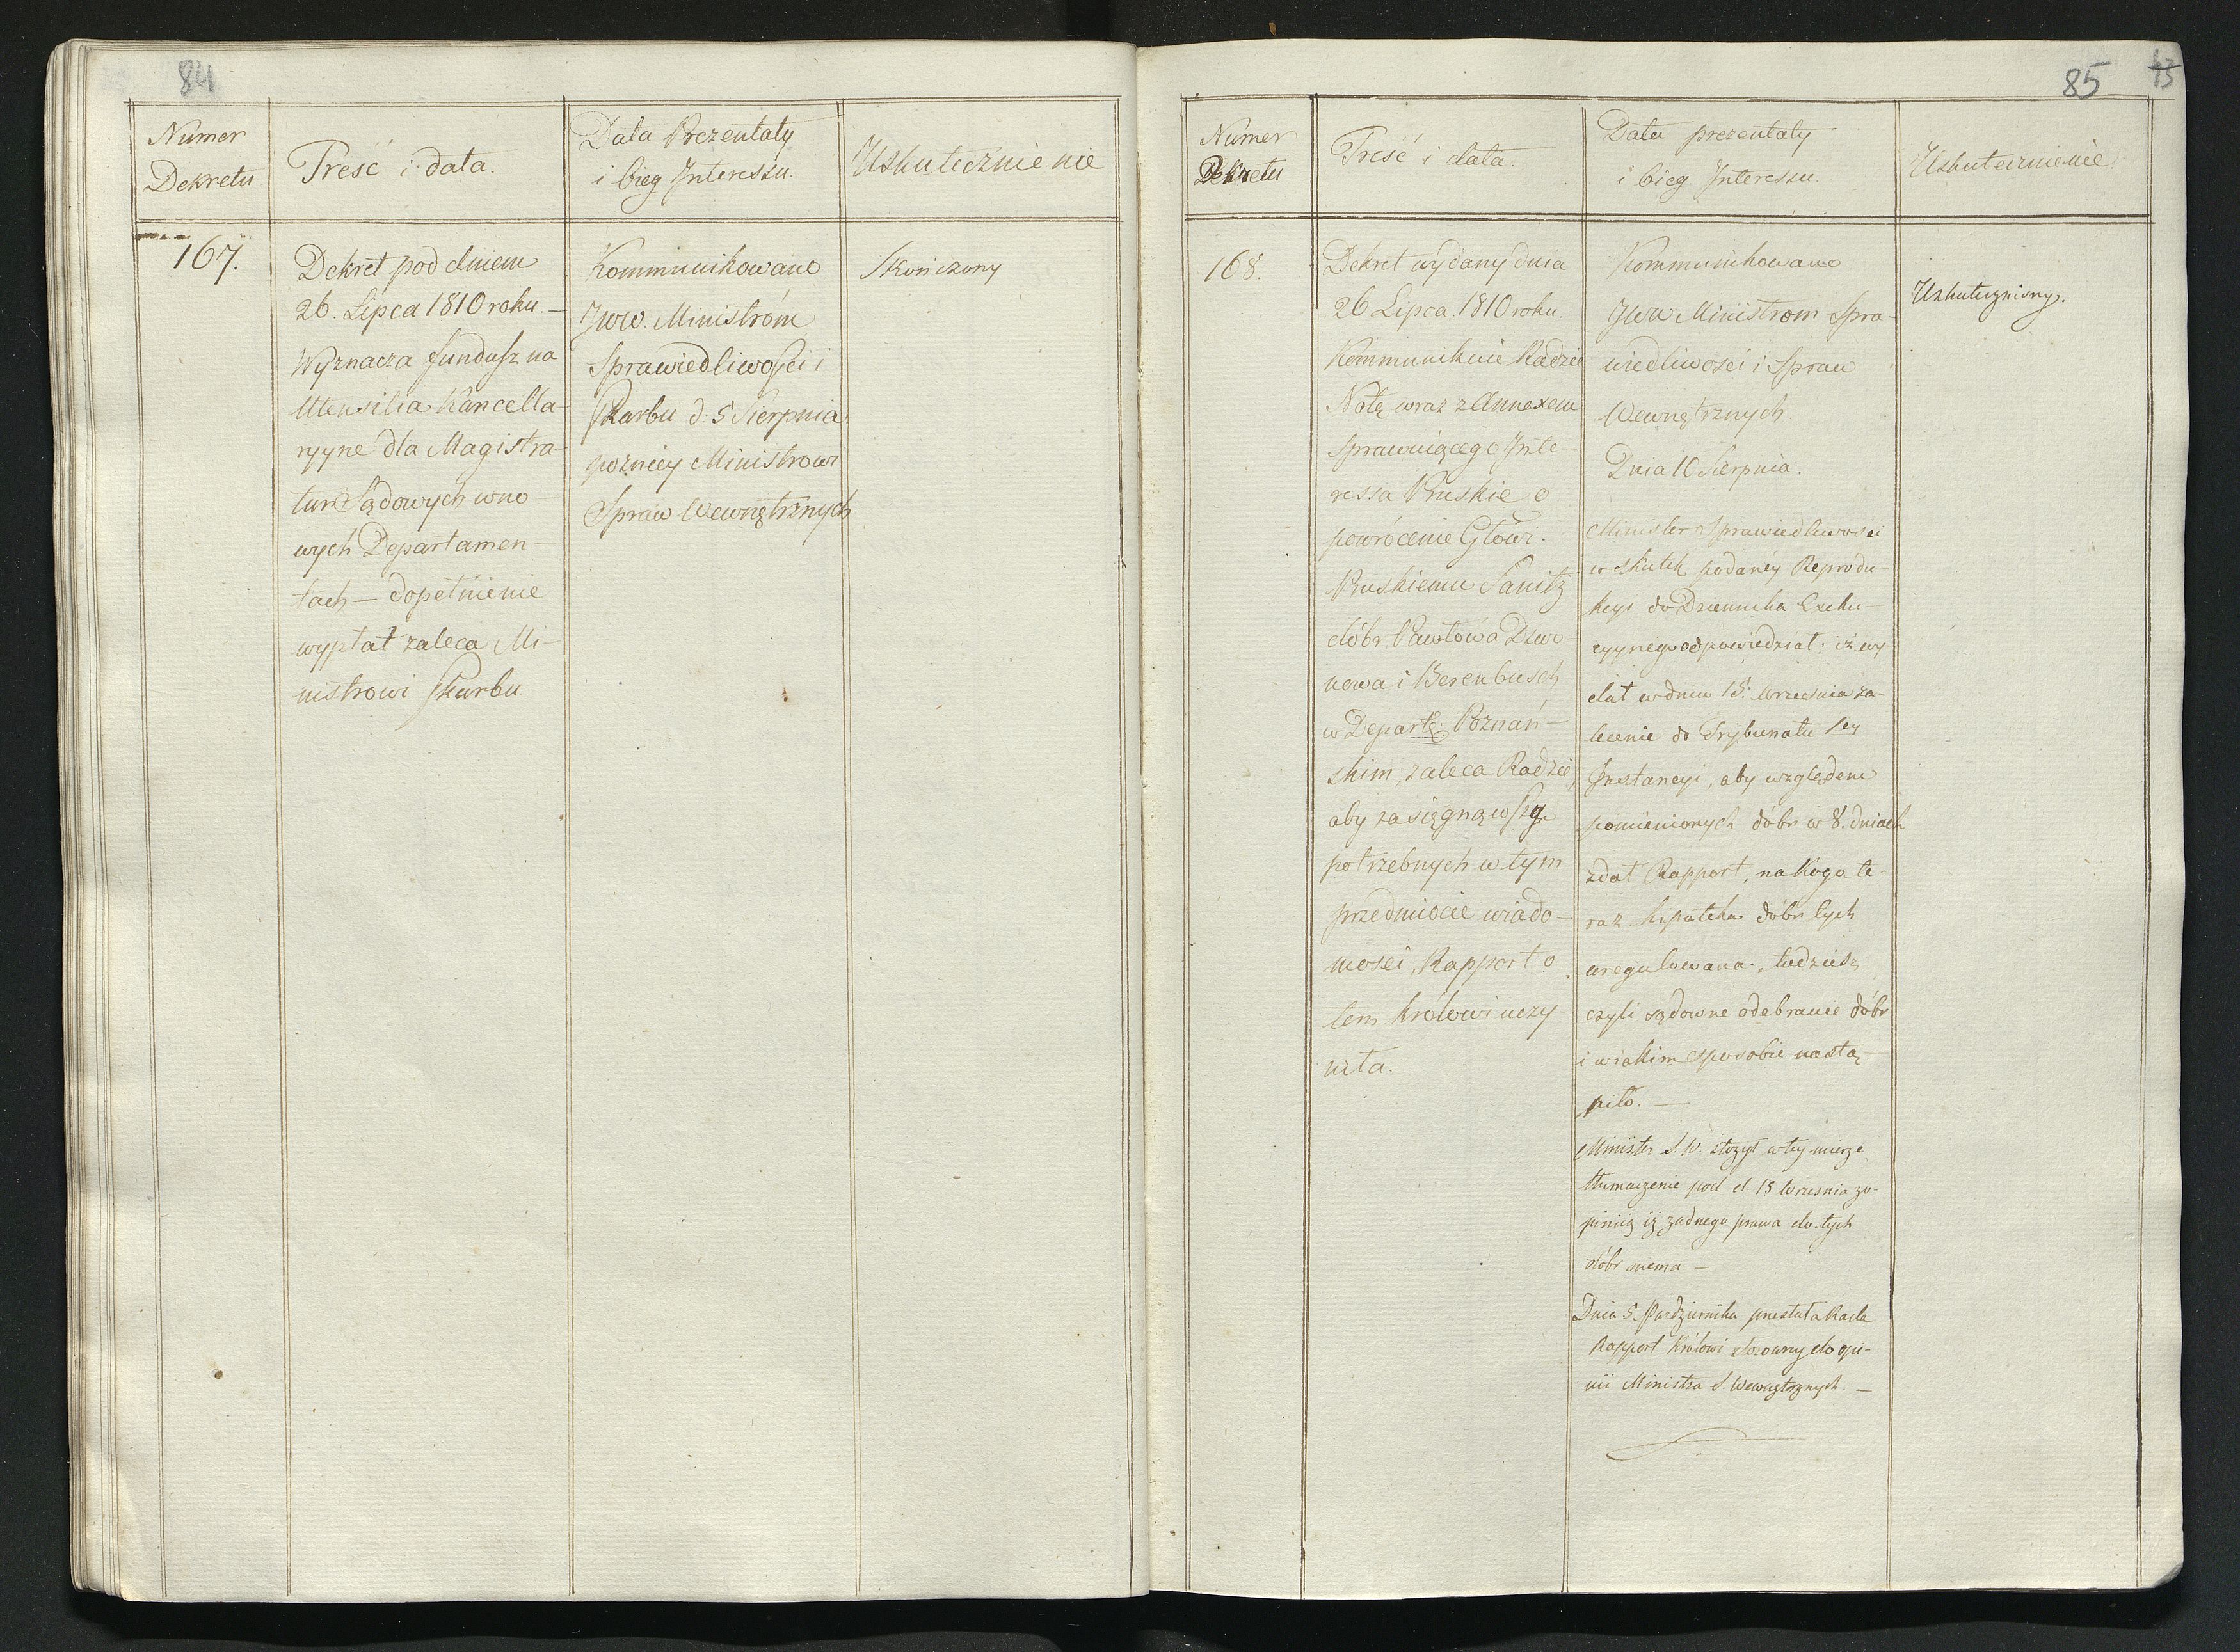 84
Numer
Dekretu
Treść i data.
Data Prezentaty
i bieg Interessu.
Uskutecznienie
167.
Dekret pod dniem
26. Lipca 1810 roku. —
Wyznacza fundusz na
Utensilia Kancella-
ryyne dla Magistra-
tur Sądowych w no-
wych Departamen-
tach — dopełnienie
wypłat zaleca Mi-
nistrowi Skarbu
Kommunikowano
JWW. Ministróm
Sprawiedliwości i
Skarbu d: 5 Sierpnia
pozniey Ministrowi
Spraw Wewnętrznych
Skończony
85
43
Numer
Dekretu
Treść i data.
Data prezentaty
i bieg Interessu.
Uskutecznienie
168.
Dekret wydany dnia
26 Lipca. 1810 roku.
Kommunikuie Radzie
Notę wraz z Annexem
sprawuiącego Inte-
ressa Pruskie o
powrócenie Głowi.
Pruskiemu Panitz
dóbr Pawłowa Dzwo-
nowa i Berenbusch
w Depart: Poznań-
skim, zaleca Radzie,
aby zasięgnąwszy
potrzebnych w tym
przedmiocie wiado-
mości, Rapport o
tem Królowi uczy-
niła.
Kommunikowano
JWW Ministrom Spra-
wiedliwości i Spraw
Wewnętrznych.
Dnia 10 Sierpnia.
Minister Sprawiedliwosci
w skutek podanéy Reprodu-
kcyi do Dziennika Exeku-
cyynego odpowiedział: iż wy-
dał w dniu 15. Września za-
lecenie do Trybunału 1ey
Instancyi, aby względem
pomienionych dóbr w 8. dniach
zdał Rapport, na kogo te-
raz hipoteka dóbr tych
uregulowana, tudzież
czyli sądowne odebranie dóbr
i w iakim sposobie nastą-
piło. —
Minister S. W. złożył w tey mierze
tłumaczenie pod d. 15 Wrzesnia z o-
piniią iż żadnego prawa do tych
dóbr niema —
Dnia 5. Pazdziernika przesłała Rada
Rapport Królowi stosowny do opi-
nii Ministra S. Wewnętrznych. —
Uskuteczniony.